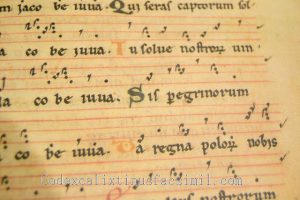 m jaco be iuua. Qui seras captorum sol
co be iuua Tu solue nostrorum uin
co be iuua. Sis peregrinorum
co be iuua. Da regna polorum nobis
nostrorum
Codexcalixtinusfacsimil.com